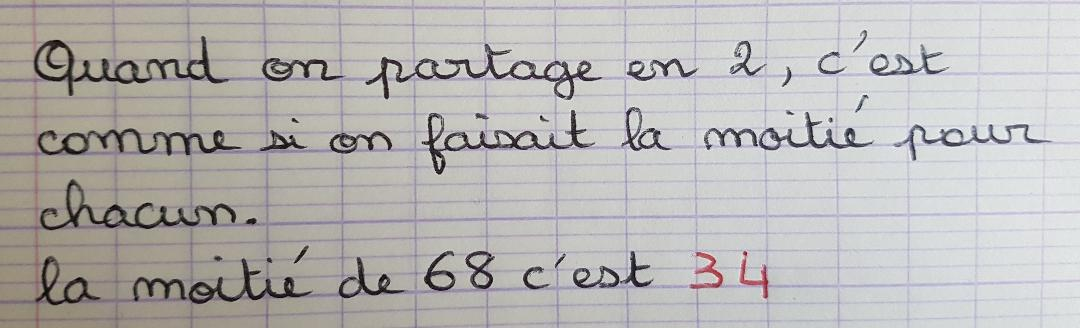 Quand on partage en 2, c'est
comme si on faisait la moitié pour
chacun.
la moitié de 68 c'est 34